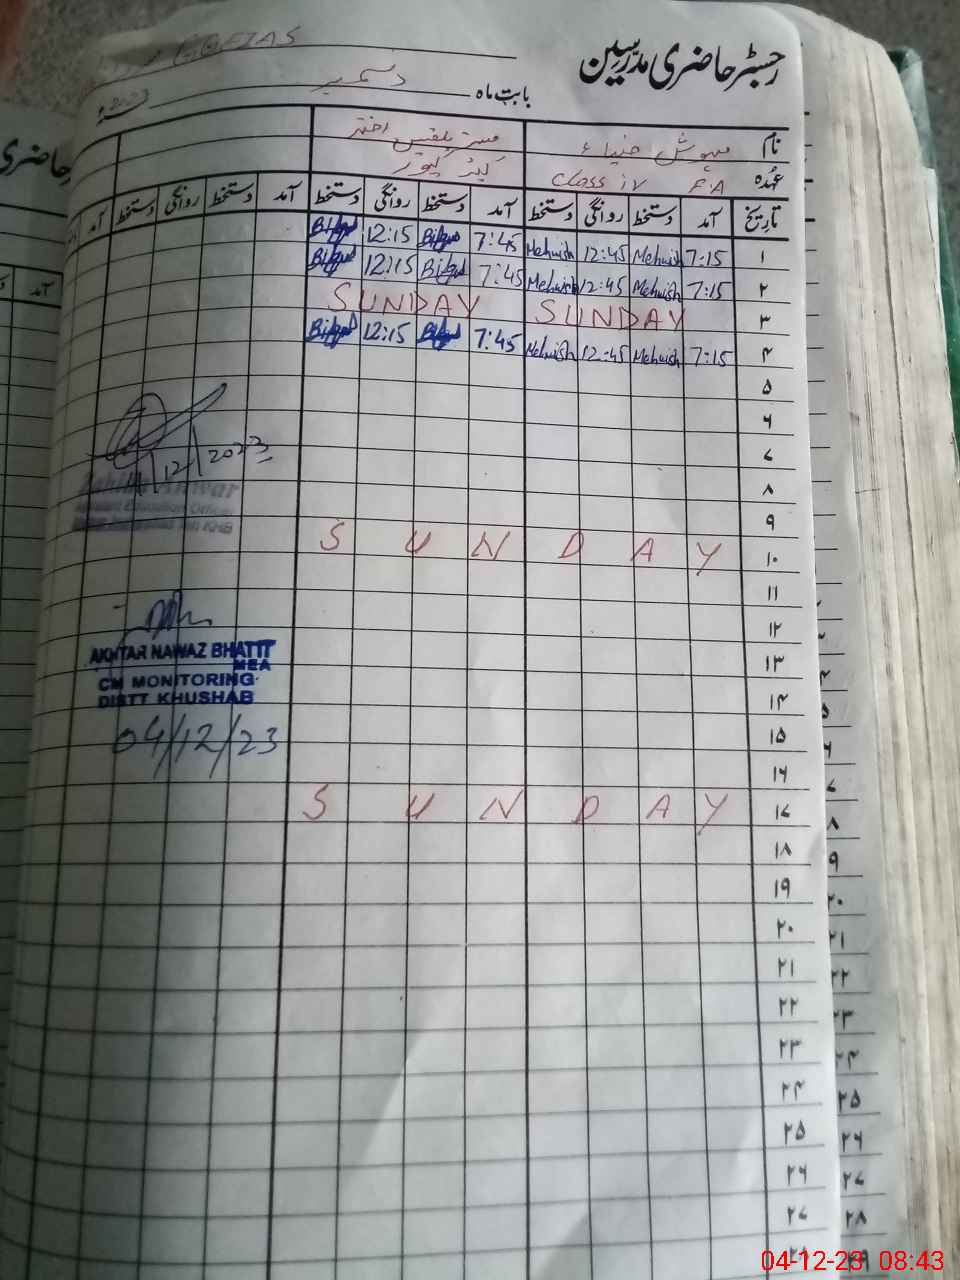 رجسٹر حاضری مدرسین
بابت ماہ دسمبر 2023ء
نام مہوش ضیاء مسز بلقیس اختر
عہدہ F.A Class iv کیئر گیور
تاریخ آمد دستخط روانگی دستخط آمد دستخط روانگی دستخط آمد دستخط روانگی دستخط آمد
۱ 7:15 Mehwish 12:45 Mehwish 7:45 12:15
۲ 7:15 Mehwish 12:45 Mehwish 7:45 12:15
۳ SUNDAY SUNDAY
۴ 7:15 Mehwish 12:45 Mehwish 7:45 12:15
۵
۶
۷
۸
۹
۱۰ SUNDAY
۱۱
۱۲
۱۳
۱۴
۱۵
۱۶
۱۷ SUNDAY
۱۸
۱۹
۲۰
۲۱
۲۲
۲۳
۲۴
۲۵
۲۶
۲۷
۲۸
12/2023
Anwar
Education Officer
AKHTAR NAWAZ BHATTI
MEA
CM MONITORING
DISTT KHUSHAB
04/12/23
حاضری
آمد
۸
۹
۲۰
۲۱
۲۲
۲۳
۲۴
۲۵
۲۶
۲۷
۲۸
۲۹
04-12-23 08:43